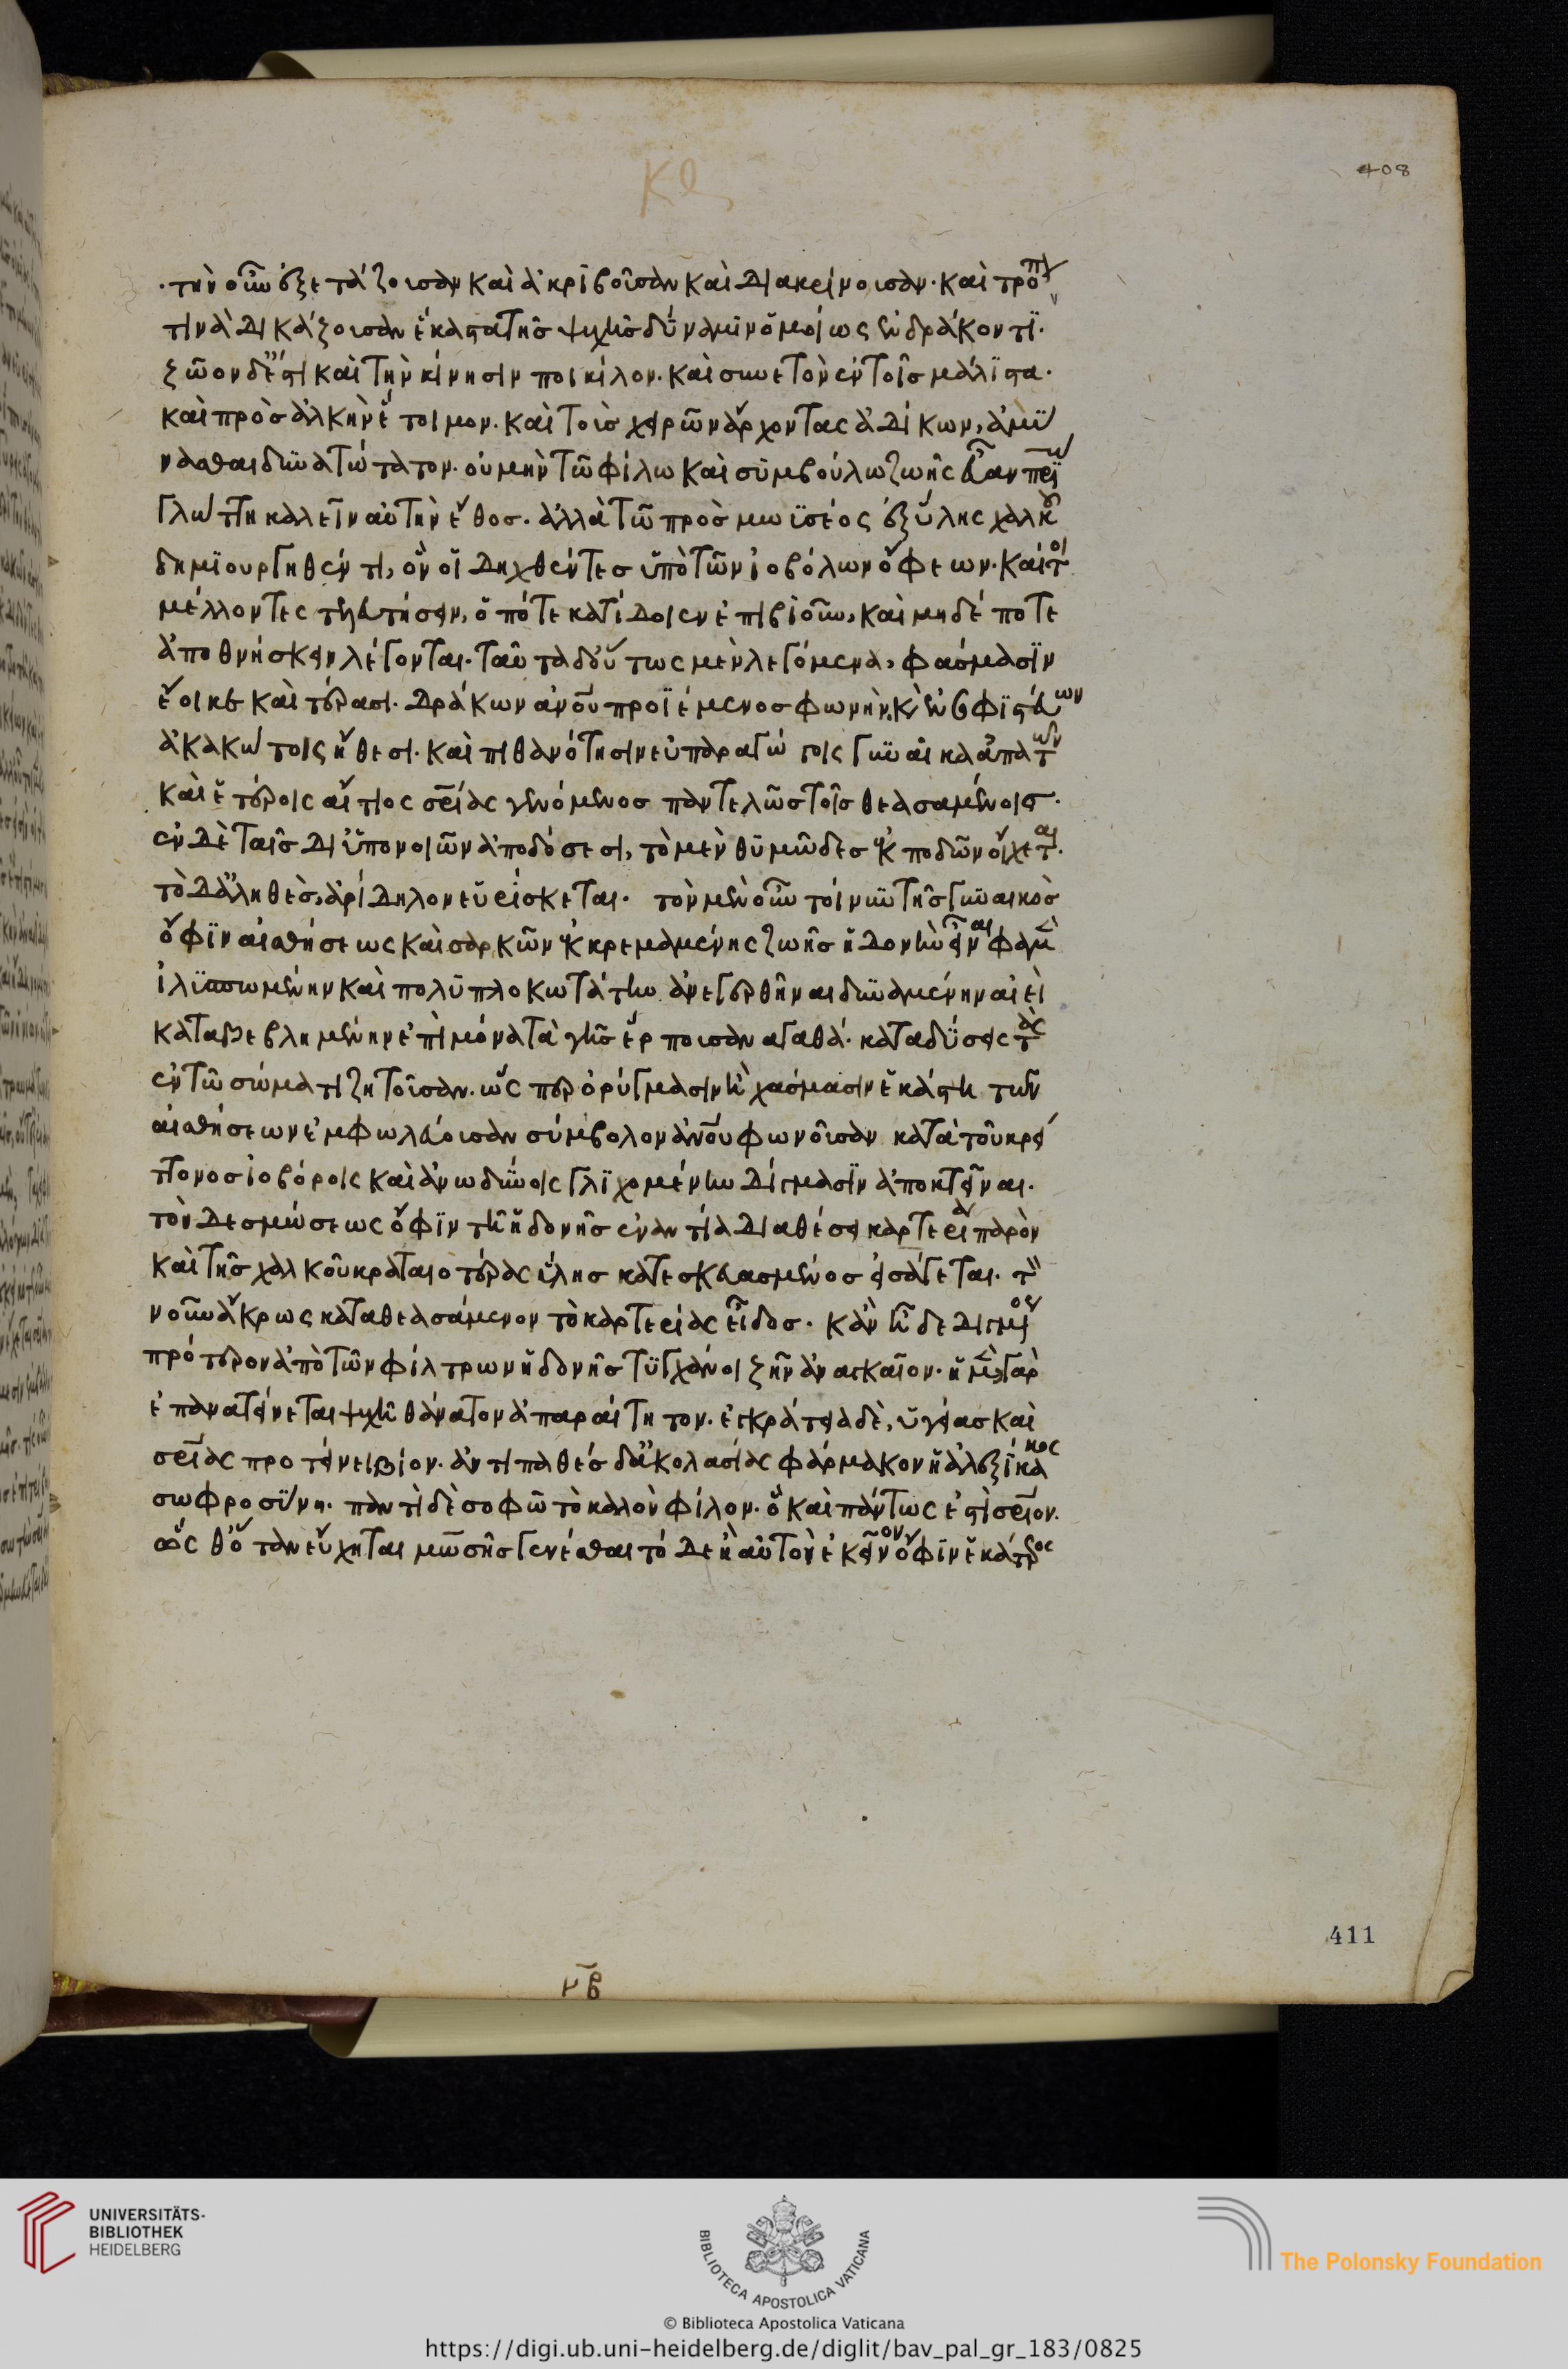 Κϛ
408
τὴν οὖν ἐξετάζουσαν καὶ ἀκριβοῦσαν καὶ διακρίνουσαν. καὶ τρόπον
τινὰ δικάζουσαν ἕκαστα τῆς ψυχῆς δύναμιν ὁμοίως ἐν δράκοντι.
ζῶον δέ ἐστι καὶ τὴν κίνησιν ποικίλον. καὶ συνετὸν ἐν τοῖς μάλιστα.
καὶ πρὸς ἀλκὴν ἕτοιμον. καὶ τοὺς χειρῶν ἄρχοντας ἀδίκων, ἀμύ
νασθαι δυνατώτατον. οὐ μὴν τῶ φίλω καὶ συμβούλω ζωῆς εὔαν πρίω
γλώττη καλεῖν αὐτὴν ἔθος. ἀλλὰ τῶ πρὸς μωϋσέος ἐξ ὕλης χαλκοῦ
δημιουργηθέντι, ὃν οἱ δηχθέντες ὑπὸ τῶν ἰοβόλων ὄφεων. καίτοι
μέλλοντες τελευτήσειν, ὁπότε κατίδοιεν ἐπιβιοῦν, καὶ μηδέποτε
ἀποθνήσκειν λέγονται. ταῦτα δ' οὕτως μὲν λεγόμενα, φάσμασιν
ἔοικε καὶ τέρασι. δράκων ἀνου προϊέμενος φωνὴν, καὶ ἐνσοφιστεύων
ἀκακωτοις ἤθεσι. καὶ πιθανότησιν εὐπαραγώγοις γυναῖκα ἀπατῶν
καὶ ἑτέροις αἴτιος σρίας γενόμενος παντελῶς τοῖς θεασαμένοις.
ἐν δὲ ταῖς δι' ὑπονοιῶν ἀποδόσεσι, τὸ μὲν θυμῶδες ἐκποδὼν οἴχεται.
τὸ δ' ἀληθὲς, ἀρίδηλον εὑρίσκεται. τὸν μὲν οὖν τοίνυν τῆς γυναικὸς
ὄφιν αἰσθήσεως καὶ σαρκῶν ἐκκρεμαμένης ζωῆς ἡδονὴν εἶναι φαμὲν
ἰλυσπωμένην καὶ πολυπλοκωτάτην ἀνεγερθῆναι δυναμένην αἰεὶ
καταβεβλημένην ἐπὶ μόνα τὰ γῆς ἕρπουσαν ἀγαθά. καταδύσεις τὰς
ἐν τῶ σώματι ζητοῦσαν. ὥσπερ ὀρύγμασιν ἢ χάσμασιν ἑκάστη τῶν
αἰσθήσεων ἐμφωλεύουσαν σύμβολον ἀνου φωνοῦσαν κατὰ τοῦ κρεί
ττονος ἰοβόροις καὶ ἀνωδύνοις γλιχομένην δήγμασιν ἀποκτεῖναι.
τὸν δὲ σμώσεως ὄφιν τῆ ἡδονῆς ἐναντία διαθέσει καρτερίαν παρὸν
καὶ τῆς χαλκοῦ κραταιοτέρας ὕλης κατεσκευασμένος εἰσάγεται. τὸ
ν οὖν ἄκρως καταθεασάμενον τὸ καρτερίας εἶδος. κἂν ἦ δεδηγμένος
πρότερον ἀπὸ τῶν φίλτρων ἡδονῆς τυγχάνοι ζῆν ἀναγκαῖον. ἡ μὲν γὰρ
ἐπανατείνεται ψυχῆ θάνατον ἀπαραίτητον. ἐγκράτεια δὲ, ὑγείας καὶ
σρίας προτείνει βίον. ἀντιπαθὲς δ' ἀκολασίας φάρμακον ἡ ἀλεξίκακος
σωφροσύνη. παντὶ δὲ σοφῶ τὸ καλὸν φίλον. ὃ καὶ πάντως ἐστὶ σριον.
ὥσθ' ὅταν εὔχηται μωσῆς γενέσθαι τό δε ἢ αὐτὸν ἐκεῖνον ὄφιν ἑκάτερος
411
μβ
UNIVERSITÄTS-
BIBLIOTHEK
HEIDELBERG
BIBLIOTECA APOSTOLICA VATICANA
The Polonsky Foundation
© Biblioteca Apostolica Vaticana
https://digi.ub.uni-heidelberg.de/diglit/bav_pal_gr_183/0825